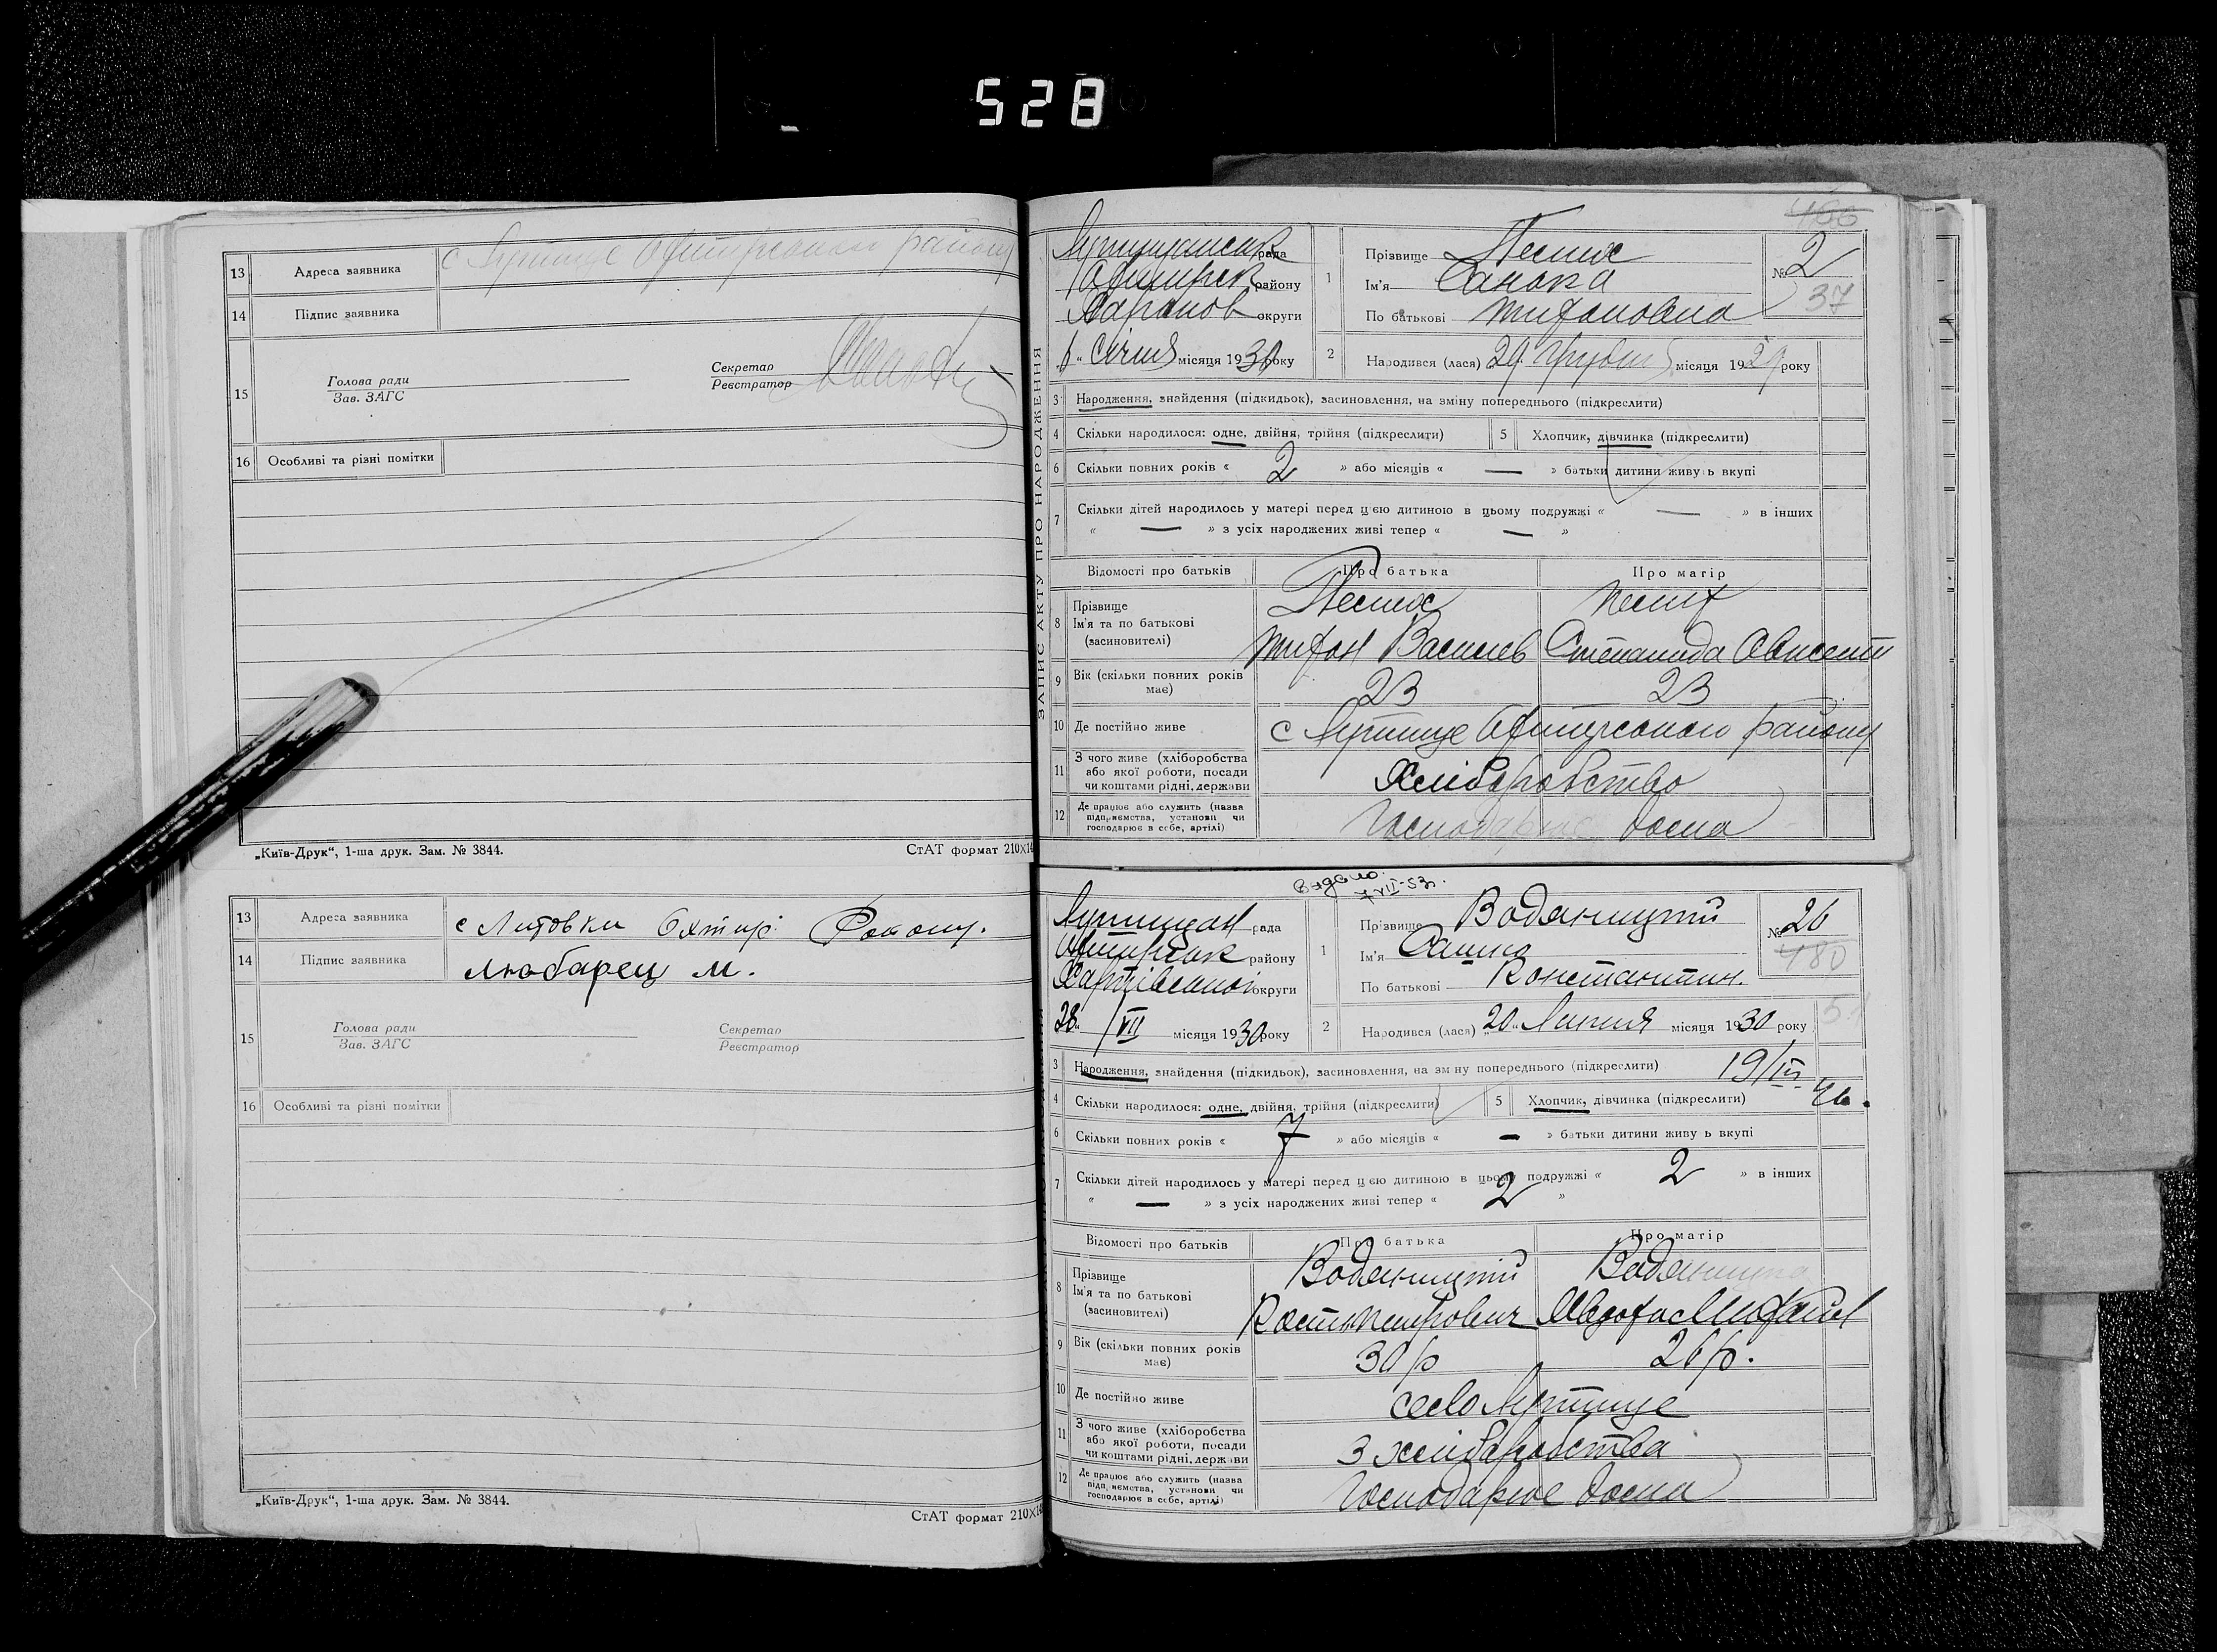 528
13 Адреса заявника с Лутище Охтирського району
14 Підпис заявника
15 Голова ради
Зав. ЗАГС
Секретар
Реєстратор
16 Особливі та різні помітки
„Київ-Друк“, 1-ша друк. Зам. № 3844.
СтАТ формат 210×14
13 Адреса заявника с Литовки Охтир Району.
14 Підпис заявника Любарец М.
15 Голова ради
Зав. ЗАГС
Секретар
Реєстратор
16 Особливі та різні помітки
„Київ-Друк“, 1-ша друк. Зам. № 3844.
СтАТ формат 210×14
ЗАПИС АКТУ ПРО НАРОДЖЕННЯ
466
рада
району
округи
Січня місяця 1930 року
1 Прізвище
Ім'я
По батькові Тифоновна
№ 2
37
2 Народився (лася) 29 Грудня місяця 1929 року
3 Народження, знайдення (підкидьок), засиновлення, на зміну попереднього (підкреслити)
4 Скільки народилося: одне, двійня, трійня (підкреслити)
5 Хлопчик, дівчинка (підкреслити)
6 Скільки повних років « 2 » або місяців « — » батьки дитини живуть вкупі
7 Скільки дітей народилось у матері перед цією дитиною в цьому подружжі « — » в інших
« — » з усіх народжених живі тепер « — »
Відомості про батьків
Про батька
Про матір
8 Прізвище
Ім'я та по батькові
(засиновителі)
Тифон Василев
Степанида
9 Вік (скільки повних років має) 23 23
10 Де постійно живе с Лутище Охтирського району
11 З чого живе (хліборобства
або якої роботи, посади
чи коштами рідні, держави
Хліборобство
12 Де працює або служить (назва
підприємства, установи чи
господарює в себе, артілі)
Господарює дома
Видано
7 VII-53.
рада
району
округи
28 VII місяця 1930 року
1 Прізвище Водяницкий
Ім'я Сашко
По батькові Константин.
№ 26
480
2 Народився (лася) „20“ Липня місяця 1930 року
3 Народження, знайдення (підкидьок), засиновлення, на зміну попереднього (підкреслити)
4 Скільки народилося: одне, двійня, трійня (підкреслити)
5 Хлопчик, дівчинка (підкреслити)
6 Скільки повних років « 7 » або місяців « — » батьки дитини живуть вкупі
7 Скільки дітей народилось у матері перед цією дитиною в цьому подружжі « 2 » в інших
« — » з усіх народжених живі тепер « 2 »
Відомості про батьків
Про батька
Про матір
8 Прізвище
Ім'я та по батькові
(засиновителі)
Водяницкий
Водяницка
Кость Петрович
9 Вік (скільки повних років має) 30 р 26 р.
10 Де постійно живе село Лутище
11 З чого живе (хліборобства
або якої роботи, посади
чи коштами рідні, держави
З хліборобства
12 Де працює або служить (назва
підприємства, установи чи
господарює в себе, артілі)
Господарює дома